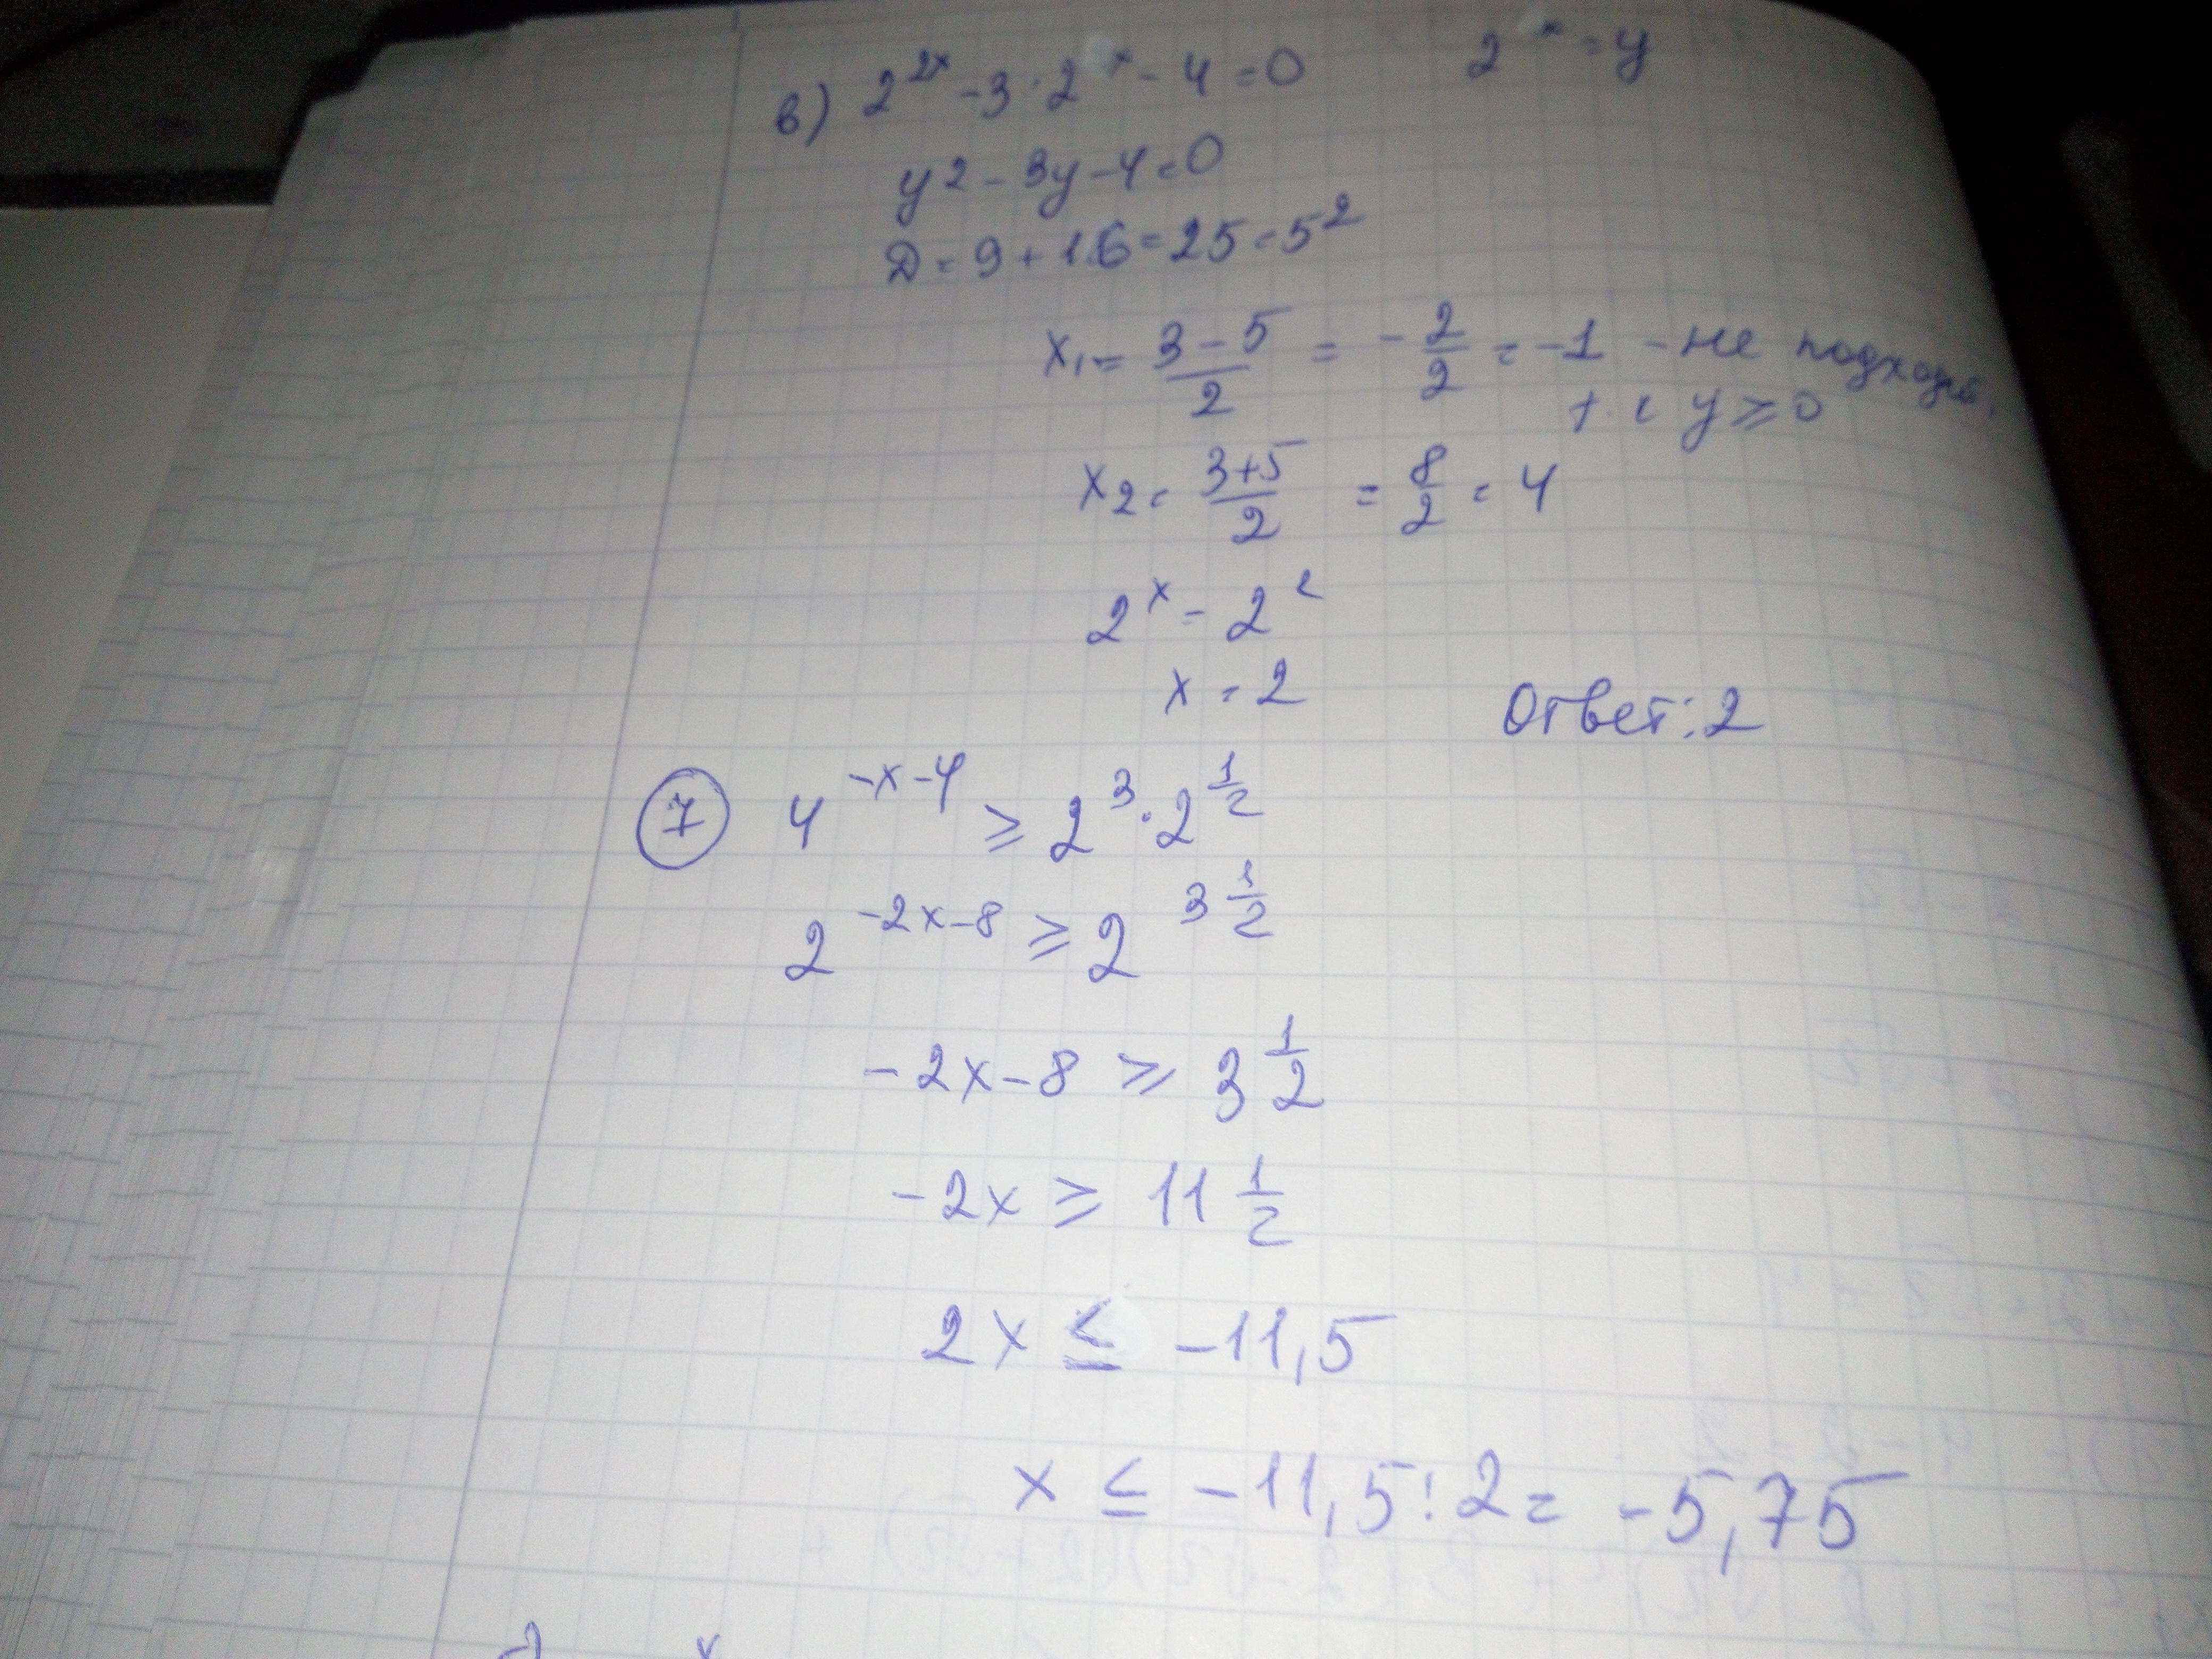 в) 2^{2x} - 3 · 2^x - 4 = 0    2^x = y
y² - 3y - 4 = 0
D = 9 + 16 = 25 = 5²
x₁ = \frac{3-5}{2} = -\frac{2}{2} = -1 - не подходит,
т.к y ≥ 0
x₂ = \frac{3+5}{2} = \frac{8}{2} = 4
2^x = 2^2
x = 2
Ответ: 2
⑦ 4^{-x-4} ≥ 2^3 · 2^{\frac{1}{2}}
2^{-2x-8} ≥ 2^{3\frac{1}{2}}
-2x - 8 ≥ 3\frac{1}{2}
-2x ≥ 11\frac{1}{2}
2x ≤ -11,5
x ≤ -11,5 : 2 = -5,75